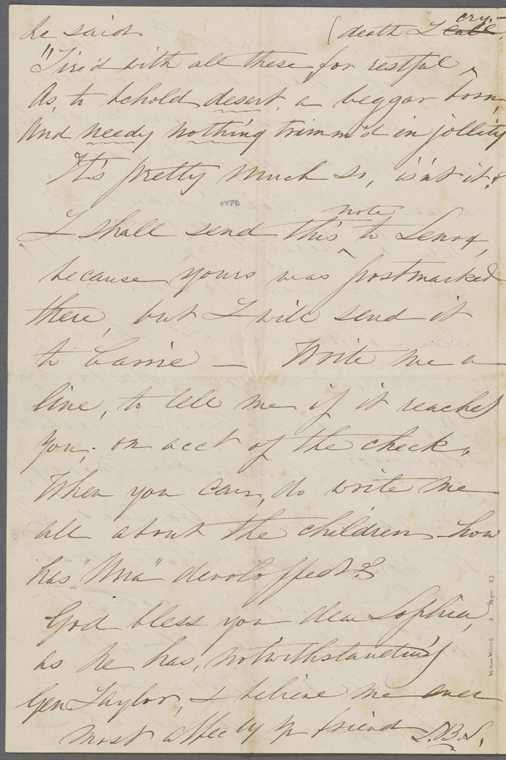 he said
"Tired with all these for restful (death I cry,-
As, to behold desert a beggar born,
And needy nothing trimm'd in jollity
It's pretty much so, isn't it?
I shall send this note to Lenox,
because yours was postmarked
there, but I will send it
to Carrie — Write me a
line, to tell me if it reached
you, on acct of the check.
When you can, do write me
all about the children. how
has "Una" developped?
God bless you dear Sophia,
as he has, notwithstanding
Gen. Taylor, & believe me ever
most affecly yr friend